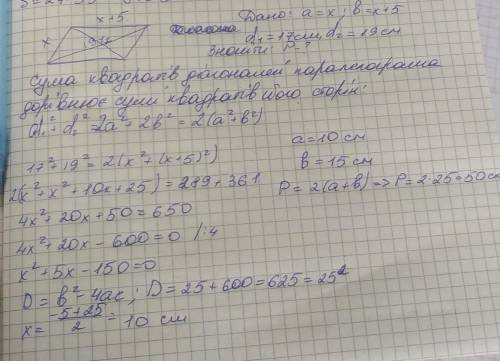 x+5
x
Дано: a=x; b=x+5
d₁=17см, d₂=19см
Знайти: P-?
Сума квадратів діагоналей паралелограма
дорівнює сумі квадратів його сторін:
d₁²+d₂²=2a²+2b²=2(a²+b²)
17²+19²=2(x²+(x+5)²)
2(x²+x²+10x+25)=289+361
4x²+20x+50=650
4x²+20x-600=0 /:4
x²+5x-150=0
D=b²-4ac; D=25+600=625=25²
x=(-5+25)/2=10 см
a=10 см
b=15 см
P=2(a+b)=>P=2·25=50см